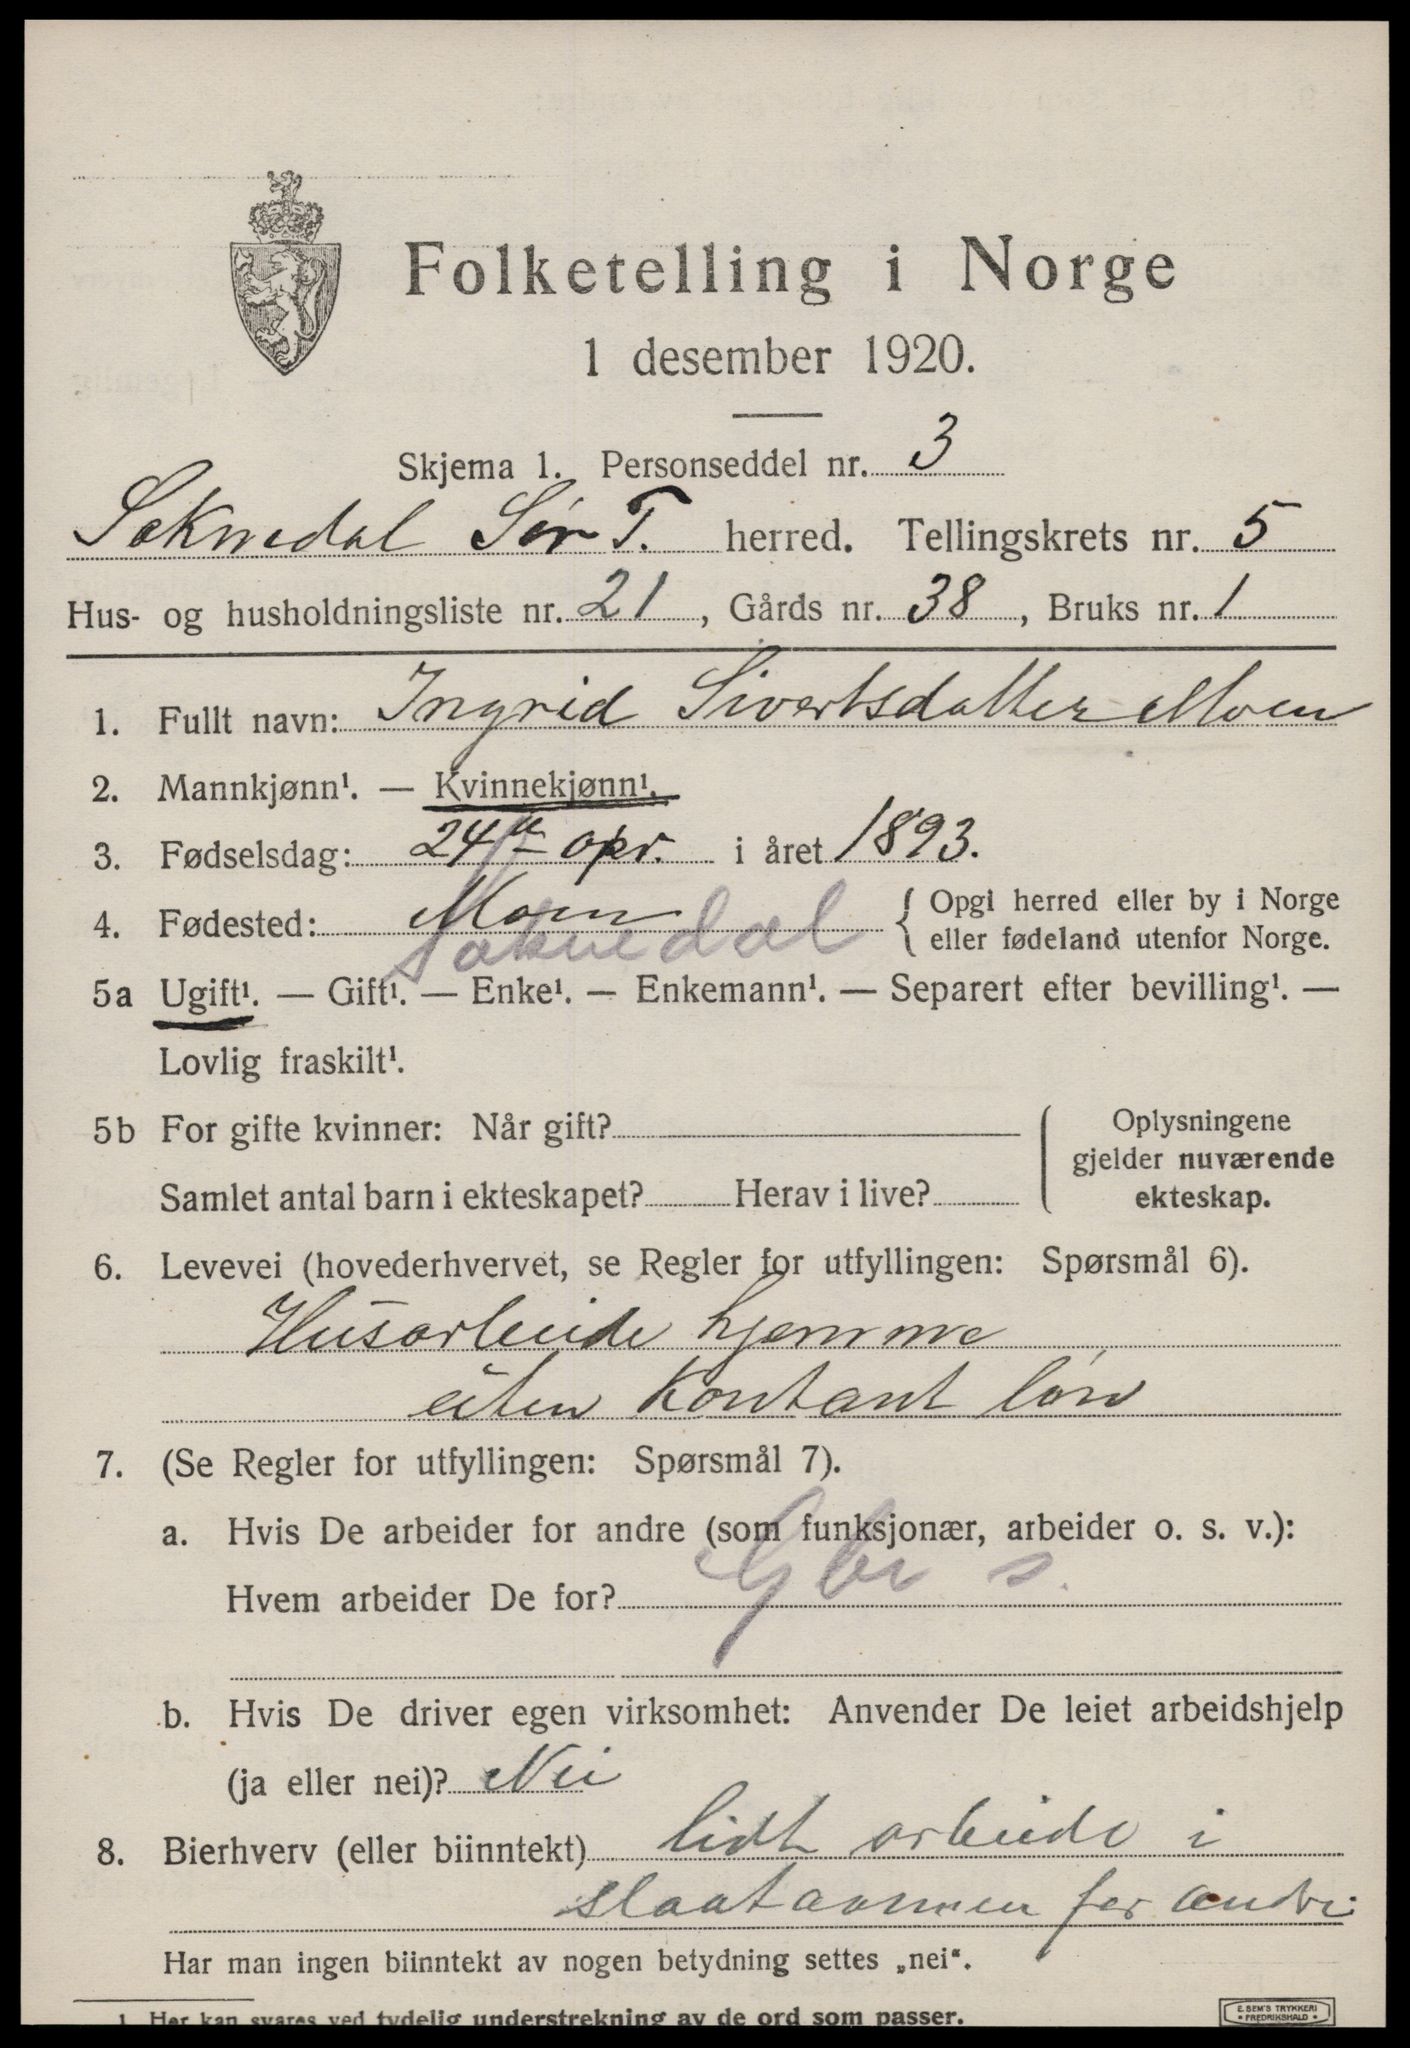 Folketelling i Norge
1 desember 1920.
Skjema 1. Personseddel nr. 3
Soknedal Sør T. herred. Tellingskrets nr. 5
Hus- og husholdningsliste nr. 21, Gårds nr. 38, Bruks nr. 1
1. Fullt navn: Ingrid Sivertsdatter Moen
2. Mannkjønn¹. — Kvinnekjønn¹.
3. Fødselsdag: 24de apr. i året 1893.
4. Fødested: Moen { Opgi herred eller by i Norge
Soknedal eller fødeland utenfor Norge.
5a Ugift¹. — Gift¹. — Enke¹. — Enkemann¹. — Separert efter bevilling¹. —
Lovlig fraskilt¹.
5b For gifte kvinner: Når gift?
Samlet antal barn i ekteskapet? Herav i live?
Oplysningene
gjelder nuværende
ekteskap.
6. Levevei (hovederhvervet, se Regler for utfyllingen: Spørsmål 6).
Husarbeide hjemme
uten kontant løn
7. (Se Regler for utfyllingen: Spørsmål 7).
a. Hvis De arbeider for andre (som funksjonær, arbeider o. s. v.):
Hvem arbeider De for? Gbr s.
b. Hvis De driver egen virksomhet: Anvender De leiet arbeidshjelp
(ja eller nei)? Nei
8. Bierhverv (eller biinntekt) lidt arbeide i
slaataannen for andre
Har man ingen biinntekt av nogen betydning settes „nei“.
1. Her kan svares ved tydelig understrekning av de ord som passer.
E. SEM'S TRYKKERI
FREDRIKSHALD